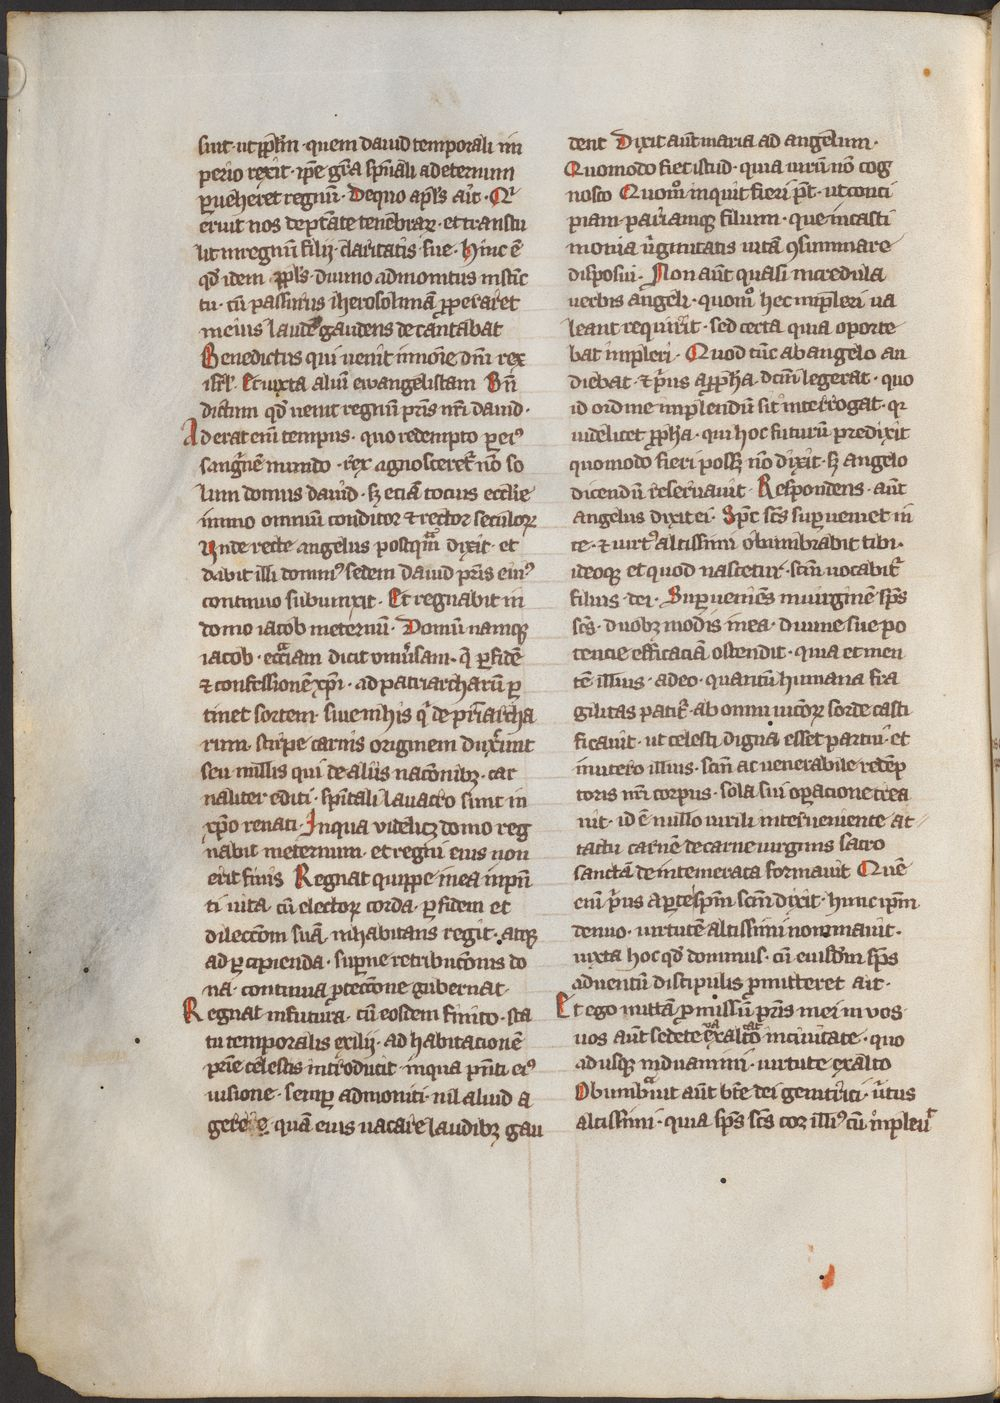 sint· ut pp̄lm̄ ·quem dauid temporali im
perio rexit· ip̄e gr̄a sp̄uali ad eternum
ꝑueheret regnū· De quo ap̄ls ait· Qͥ
eruit nos de ptāte tenebraꝝ· et transtu
lit in regnū filij claritatis sue· Hinc ē
qd̄ idem pp̄ls· diuino admonitus instīc
tu· cū passurus iherosolimā ꝓperaret
in eius laude gaudens decantabat
Benedictus qui uenit in noīe dn̄i rex
isrl̄· Et iuxta aliū ewangelistam Bn̄
dictum qd̄ uenit regnū pr̄is nr̄i dauid·
Aderat eni tempus· quo redempto per eiꝰ
sangͥnē mundo· rex agnosceretᷣ nō so
lum domus dauid· sꝫ eciā tocius ecclīe
immo omniū conditor ⁊ rector seculoꝝ
Unde recte angelus postqͣm dixit· et
dabit illi dominꝰ sedem dauid pr̄is eiuꝰ
continuo subiunxit· Et regnabit in
domo iacob in eternū· Domū namqꝫ
iacob· ecc̄iam dicit vniuͥsam· q̄ ꝑ fidē
⁊ confessionē xp̄i· ad patriarcharū ꝑ
tinet sortem· siue in his qͥ de pr̄iarcha
rum stirpe carnis originem duxᷣunt
seu in illis qui de aliis nacōnibꝫ· car
naliter editi· sp̄itali lauacro sunt in
xp̄o renati· In qua videlicꝫ domo reg
nabit in eternum· et regni eius non
erit finis Regnat quippe in ea in pn̄
ti uita cū electoꝝ corda· ꝑ fidem et
dilectōem suā inhabitans regit· atqꝫ
ad ꝑcipienda· suꝑne retribucōnis do
na· continua ꝓteccōne gubernat·
Regnat in futura· cū eosdem finito· sta
tu temporalis exilij· ad habitacionē
pr̄ie celestis introducit· in qua pn̄ti eiꝰ
uisione· semꝑ admoniti· nil aliud a
gere quā eius uacare laudibꝫ gau
dent Dixit aūt maria ad angelum·
Quomodo fiet istud· quia uirū nō cog
nosco Quomͦ inquit fieri p̄t· ut conci
piam pariamqꝫ filium· que in casti
monia uͥginitatis uitā ꝯsummare
disposui· Non aūt quasi incredula
uerbis angeli· quomͦ hec impleri ua
leant requirit· sed certa quia oporte
bat impleri· Quod tūc ab angelo au
diebat· ⁊ pͥus a ꝓpha dictū legerat· quo
id ordine implendū sit interrogat· qꝛ
uidelicet ꝓpha· qui hoc futurū predixit
quomodo fieri possꝫ nō dixit· sꝫ angelo
dicendū reseruauit· Respondens· aūt
angelus dixit ei· Sp̄c sc̄s suꝑueniet in
te· ⁊ uirtꝰ altissimi obumbrabit tibi·
ideoqꝫ et quod nascetur· scm̄ uocabitᷣ
filius· dei· Suꝑueniēs in uirginē sp̄s
sc̄s· duobꝫ modis in ea· diuine sue po
tencie efficaciā ostendit· quia et men
tē illius· adeo· quantū humana fra
gilitas patitᷣ· ab omni uicioꝝ sorde casti
ficauit· ut celesti digna esset partui· et
in utero illius· scm̄ ac uenerabile redēp
toris nr̄i corpus· sola sui oꝑacione crea
uit· id ē nullo uirili interueniente at
tactu carnē de carne uirginis sacro
sanctā de intemerata formauit Quē
eni pͥus aperte sp̄m scm̄ dixit· hunc ip̄m
denuo· uirtutē altissimi nominauit·
iuxta hoc qd̄ dominus· cū euisdm̄ sp̄s
aduentū discipulis ꝓmitteret ait·
Et ego mittā ꝓmissū pr̄is mei in vos
uos aūt sedete in ciuitate· quo
adusqꝫ induamini· uirtute ex alto
Obumbͣuit aūt bt̄e dei genitrici· uͥtus
altissimi· quia sp̄s sc̄s cor illiꝰ cū impleuͥ